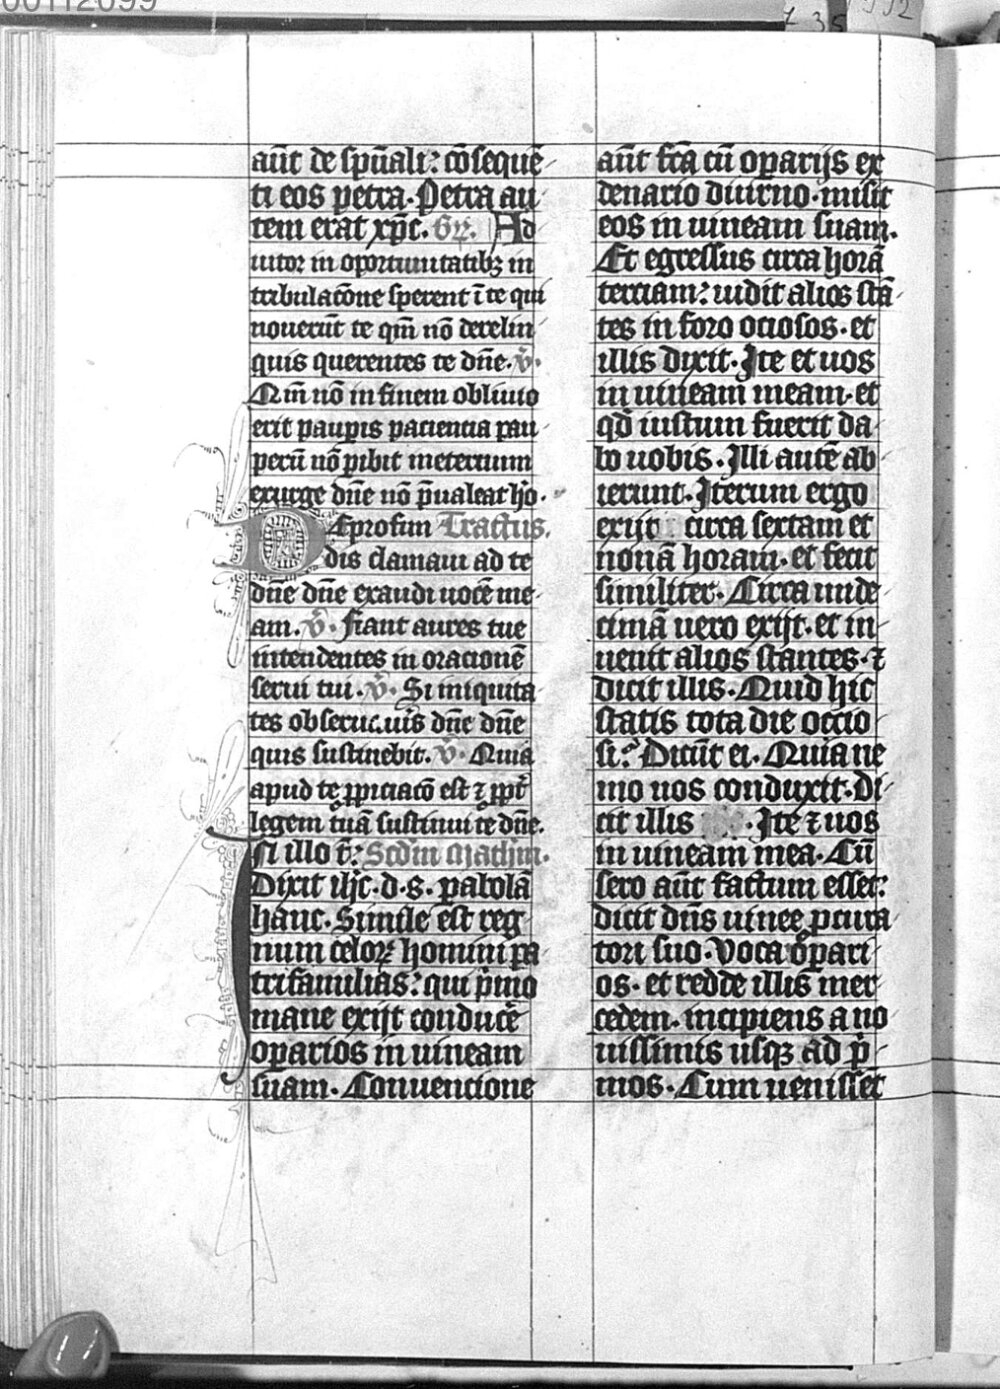 aūt de spūali: cōsequē
ti eos petra. Petra au
tem erat xp̄c. Gr̄. Ad
iutor in oportunitatibꝫ in
tribulacōne sperent ī te qui
nouerūt te qm̄ nō derelin
quis querentes te dn̄e. v̄.
Qm̄ nō in finem obliuio
erit paup̲is paciencia pau
perū nō p̲ibit in eternum
exurge dn̄e nō p̄ualeat hō.
De profun Tractus.
dis clamaui ad te
dn̄e dn̄e exaudi uocē me
am. v̄. Fiant aures tue
intendentes in oracionē
serui tui. v̄. Si iniquita
tes obseruaueris dn̄e dn̄e
quis sustinebit. v̄. Quia
apud te ꝓpiciacō est ⁊ ꝓpt̄
legem tuā sustinui te dn̄e.
In illo t̄: Scd̄m mathm̄.
Dixit ih̄c. d. s. pabolā
hanc. Simile est reg
num celoꝝ homini pa
trifamilias: qui p̄mo
mane exijt conducē
op̲arios in uineam
suam. Conuencione
aūt fc̄a cū op̲arijs ex
denario diurno. misit
eos in uineam suam.
Et egressus circa horā
terciam: uidit alios stā
tes in foro ociosos. et
illis dixit. Ite et uos
in uineam meam. et
qd̄ iustum fuerit da
bo uobis. Illi autē ab
ierunt. Iterum ergo
exijt circa sextam et
nonā horam. et fecit
similiter. Circa unde
cimā uero exijt. et in
uenit alios stantes. ⁊
dicit illis. Quid hic
statis tota die occio
si? Dicūt ei. Quia ne
mo nos conduxit. Di
cit illis . Ite ⁊ uos
in uineam mea. Cū
sero aūt factum esset:
dicit dn̄s uinee ꝓcura
tori suo. Voca op̲ari
os. et redde illis mer
cedem. incipiens a no
uissimis usqꝫ ad p̄
mos. Cum uenissēt